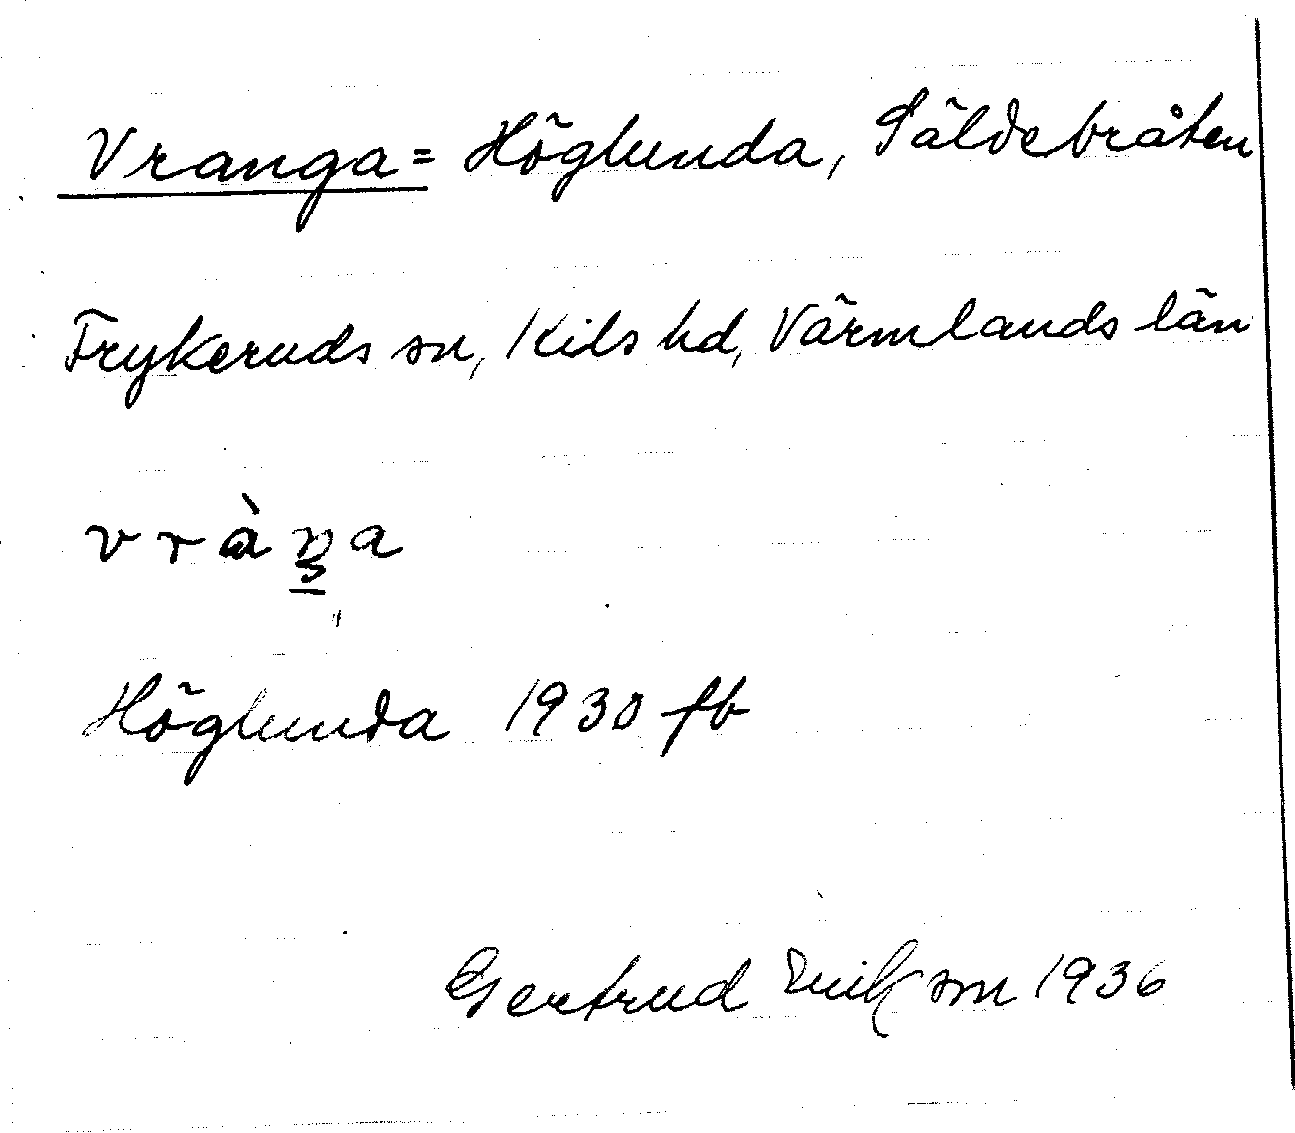 Vranga = Höglunda, Säldebråten
Frykeruds sn, Kils hd, Värmlands län
vràŋa
Höglunda 1930 fb
Gertrud Eriksson 1936